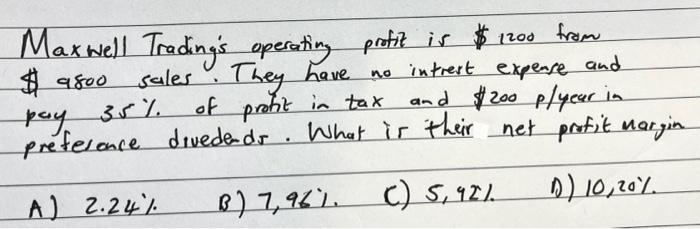 Maxwell Trading's operating profit is $ 1200 from
$ 9800 sales. They have no intrest expense and
pay 35 % of profit in tax and $200 p/year in
preference divedends. What is their net profit margin
A) 2.24% B) 7,96%. C) 5,92% D) 10,20%.